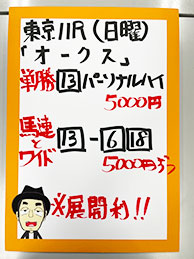 東京11R(日曜)
「オークス」
単勝 13 パーソナルハイ
5000円
馬連とワイド 13-6 18
5000円ずつ
※展開利!!